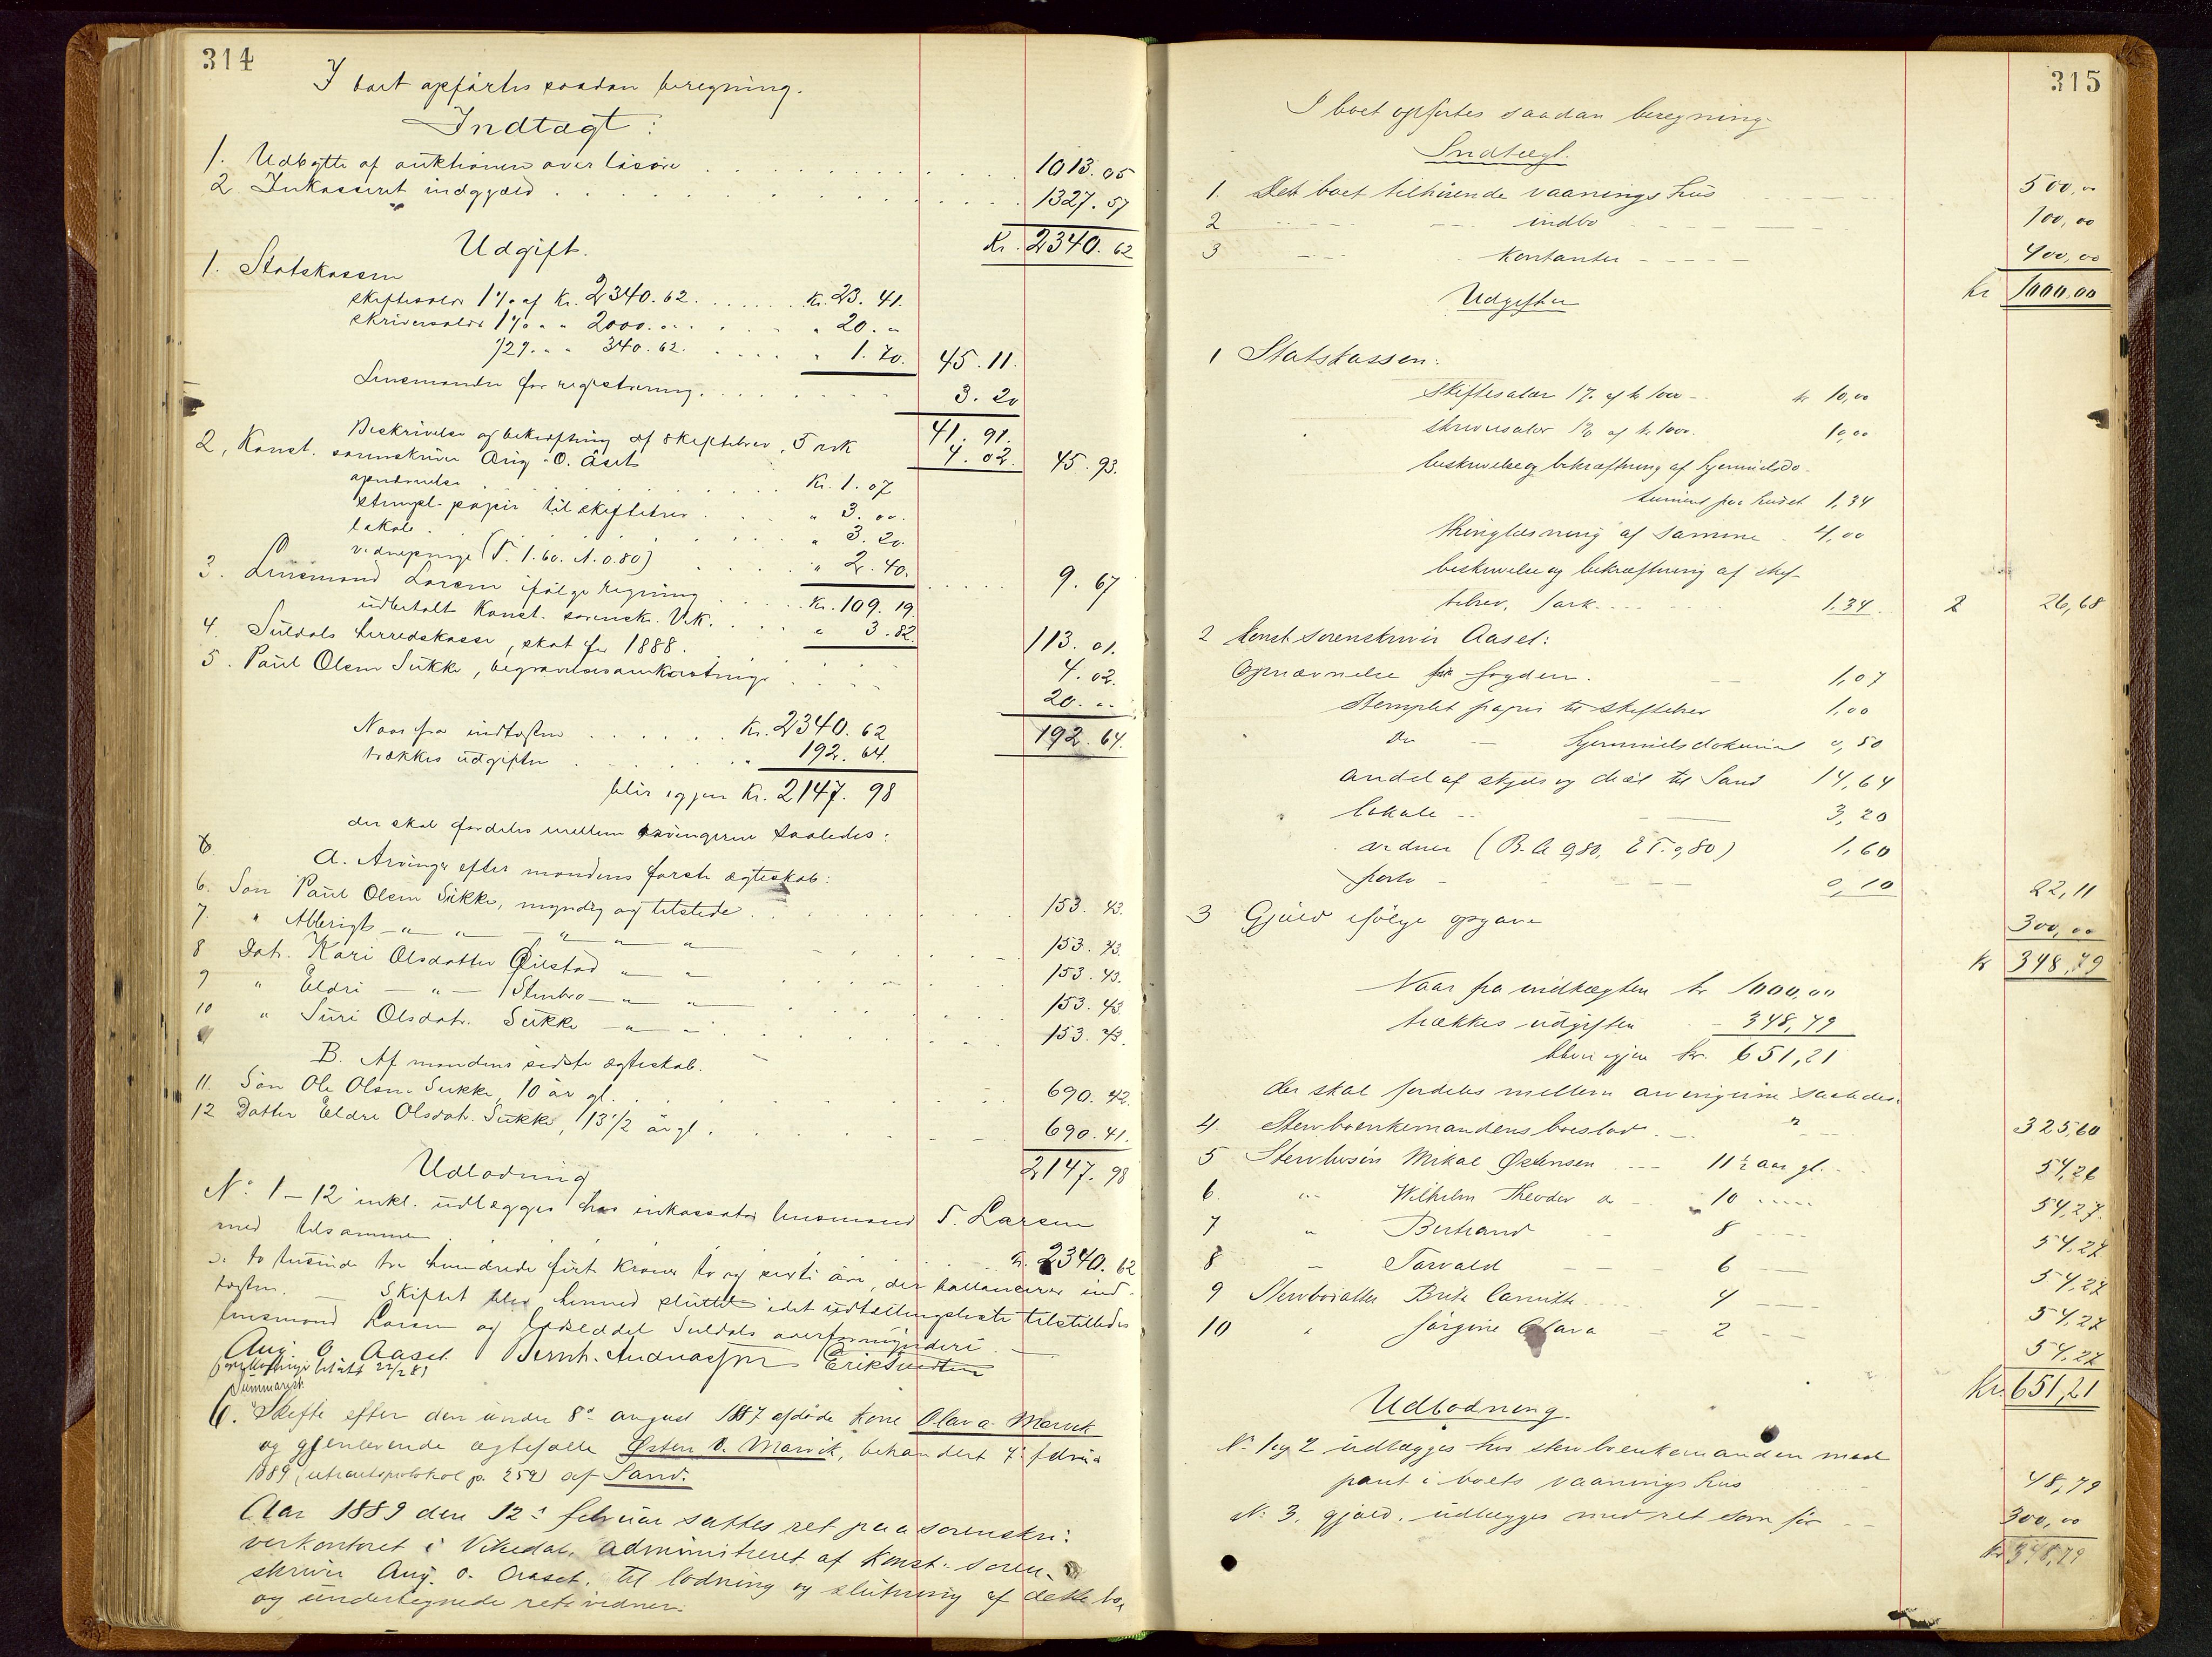 314
I boet opførtes saadan beregning.
Indtægt:
1. Udbytte af auktionen over løsøre 1013.05
2 Inkasseret indgjæld 1327.57
Kr. 2340.62
Udgift.
1. Statskassen
skiftesalær 1% af Kr. 2340.62. Kr. 23.41.
skriversalær 1% " " 2000. " 20. "
1/2%. " " 340.62. " 1.70. 45.11.
Lensmanden for registrering. 3.20
41.91.
Beskrivelse og bekræftning af skiftebrev, 5 ark 4.02. 45.93.
2, Konst. sorenskriver Aug. O. Aaset
opnævnelse Kr. 1.07
stempl. papir til skiftebrev " 3.00.
lokale " 3.20.
vidnepenge (T. 1.60. A. 0.80) " 2.40. 9.67
3. Lensmand Larsen ifølge regning Kr. 109.19.
udbetalt Konst. sorensk. V.k. " 3.82. 113.01.
4. Suldals herredskasse, skat for 1888. 4.02.
5. Paul Olsen Sukke, begravelsesomkostninger 20. "
192.64.
Naar fra indtægten Kr. 2340.62
trækkes udgiften " 192.64.
blir igjen Kr. 2147.98
der skal fordeles mellem arvingerne saaledes:
A. Arvinger efter mandens første ægteskab:
6. Søn Paul Olsen Sukke, myndig og tilstede 153.43.
7. " Abberigt - " - " - " " " 153.43.
8 Dat. Kari Olsdatter Quistad " " 153.43.
9 " Eldri - " - Stenbro - " " 153.43.
10 " Siri Olsdatr. Sukke - " " 153.43.
B. Af mandens sidste ægteskab.
11. Søn Ole Olsen Sukke, 10 år gl. 690.42.
12 Datter Eldri Olsdatr. Sukke, 13 1/2 år gl. 690.41.
2147.98
Udlodning
No. 1-12 inkl. udlægges hos inkassator lensmand T. Larsen
med tilsammen Kr. 2340.62
to tusinde tre hundrede firti kroner to og sexti øre, der ballancerer ind-
tægten. - Skiftet blev hermed sluttet idet udtællingsliste tilstilledes
lensmand Larsen og lodseddel Suldals overformynderi. -
Aug. O. Aaset Bernh. Andreassen Erik Tvedten
betalt 22/2 89
Summarisk
6. Skifte efter den under 8de august 1887 afdøde kone Olava Marvik
og gjenlevende ægtefælle Østen O. Marvik, behandlet 4 februar
1889 (extraretsprotokol p. 259) af Sand.
Aar 1889 den 12te februar sattes ret paa sorenskri-
verkontoret i Vikedal, administreret af Konst. soren-
skriver Aug. O. Aaset, til lodning og slutning af dette bo,
og undertegnede retsvidner.
315
I boet opførtes saadan beregning.
Indtægt.
1. Det boet tilhørende vaaningshus 500,00
2 indbo 100,00
3 Kontanter 400,00
Kr 1000,00
Udgifter
1 Statskassen:
skiftesalær 1% af kr 1000 - kr 10,00
skriversalær 1% af kr 1000. 10,00
beskrivelse og bekræftning af hjemmelsdo-
kument paa huset 1,34
thinglæsning af samme 4,00
beskrivelse og bekræftning af skif-
tebrev, 1 ark 1,34. 26,68
2 Konst. sorenskriver Aaset:
Opnævnelse fra fogden. 1,07
Stemplet papir til skiftebrev 1,00
do - hjemmelsdokument 0,50
andel af skyds og diæt til Sand 14,64
lokale 3,20
vidner (B.A 0,80, E T. 0,80) 1,60
porto 0,10 22,11
3 Gjæld ifølge opgave 300,00
kr 348,79
Naar fra indtægten kr 1000,00
trækkes udgiften - 348,79
bliver igjen kr. 651,21
der skal fordeles mellem arvingerne saaledes:
4. Stervboenkemandens boeslod 325,60
5 Stervbosøn Mikal Østensen 11½ aar gl. 54,26
6. " Wilhelm Theodor do 10 54,27.
7 " Bertrand 8 54,27
8 " Torvald 6 54,27
9 Stervbodatter Brite 4 54,27
10 " Jørgine Olava 2 54,27
Kr. 651,21
Udlodning.
No 1 og 2 udlægges hos stervboenkemanden med
pant i boets vaaningshus 48,79
No 3. gjæld. udlægges med ret som før 300,00
kr 348,79